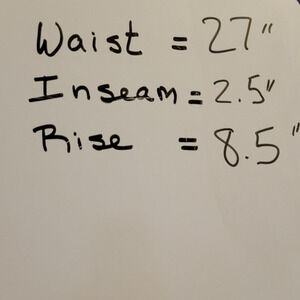 Waist = 27"
Inseam = 2.5"
Rise = 8.5"